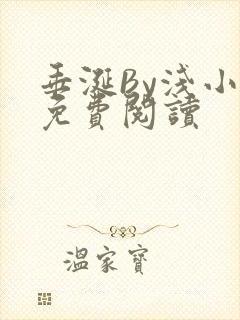 垂涎By淺小
免費閱讀
溫家寶